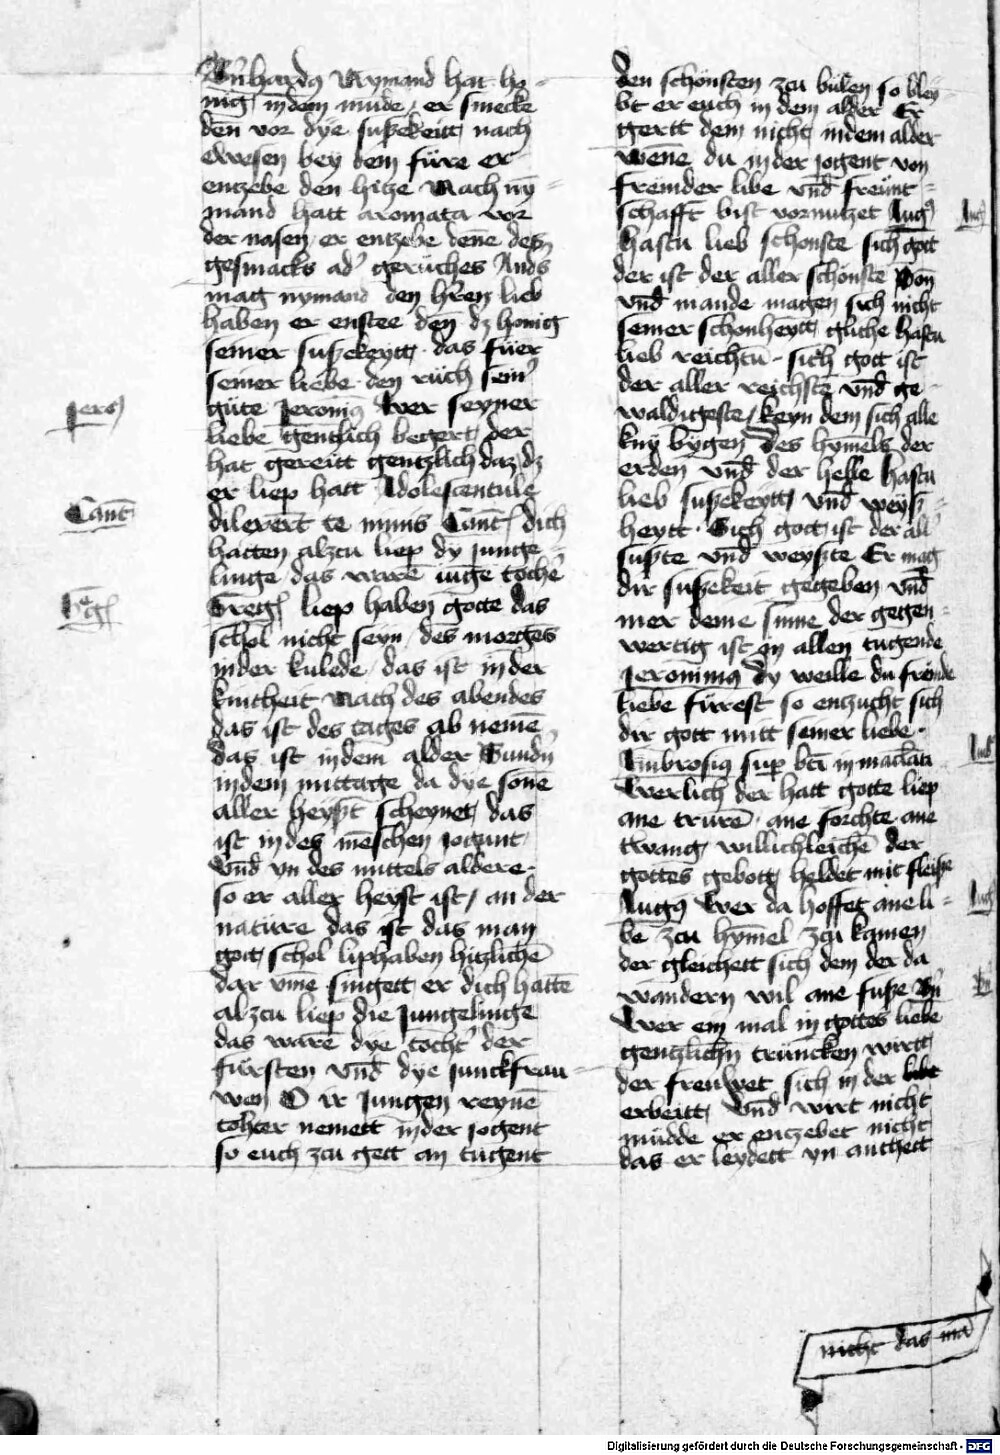 Bñhardꝰ Nymand hat ho-
nig / in dem mude / er smecke
den vor dye sußekeitt nach
ewesen bey dem füre er
entzebe den hitze Nach nÿ-
mand hatt aromata vor
der nasen / er entzebe denē des
gesmacks adˀ gerüches Ands
mag nymand den hr̄en lieb
haben er enstee den̄ dz honig
seiner sußekeytt · das füer
seiner liebe · den rüch seinˀ
güte Jeronimꝰ Wer seyner
liebe gentzlich begert / der
hat gereitt gentzlich daz dz
er liep hatt Adolescentule
dilexer̄t te nimis Cant̄ dich
hatten alzcu liep dy junge-
linge / das warē iuge tochˀ
Gregˀ liep haben gotte das
schol nicht seyn / des morgēs
in der kulede / das ist in der
kintheit Nach des abendes
das ist des tages ab nemē
das ist in dem alder Sundˀn
in dem mittage da dye sonē
aller heyßt scheynet / das
ist in des mēschen jogunt
vnd̄ yn des mittels aldere ·
so er aller heyst ist / an der
natüre das ist das man
gott schol liphaben hitzlichē
dar vmē singett er dich hattē
alzcu liep die Jungelinge
das warē dye tochˀt der
fürsten vnd̄ dye junckfrau-
wen O ir Jungen reynē
tohter nemett in der jogent
so euch zcu gett an tugent
den schönsten zcu bülen so bley-
bt er euch in dem alder Er
gertt dem nicht in dem alder
Wēne du in der jogent von
fremder libe vnd̄ freünt-
schafft bist vornutzet Augꝰ
hastu lieb schonste sich gott
der ist der aller schönste Son̄
vnd̄ mande magen sich nicht
seiner schonheytt gliche hastu
lieb reichtū · sich gott ist
der aller reichste vnd̄ ge-
waldigeste / keyn dem sich alle
kny bygen des hymels der
erden vnd̄ der helle hastu
lieb sußekeytt vnd̄ weyß-
heytt · Sich gott ist der allˀ
sußte vnd̄ weyßte Er mag
dir sußekeit gegeben vnd̄
mer deine sinne der gegen-
wertig ist in allen tugende
Jeronimꝰ dy weille du frēnde
liebe fürest so entzucht sich
dir gott mitt seiner liebe ·
Ambrosiꝰ sup̄ bt̄i in maclāti
Werlich der hatt gotte liep
ane trurē · ane forchte · ane
twang / willichleichē der
gottes gebott heldet mit fleiße
Augꝰ Wer da hoffet ane li-
be zcu hymel zcu kamen
der gleichett sich dem der da
wandern wil ane fuße Bñ
Wer ein mal in gottes liebe
gentzlichn̄ trüncken wirtt
der freuwet sich in der
erbeitt vnd̄ wirt nicht
müdde er entzebet nicht
das er leydett yn anthett
Jero
Cant̄
Gg̃
Augˀ
Amb̄
Augˀ
Bñ
nicht das ma
Digitalisierung gefördert durch die Deutsche Forschungsgemeinschaft - DFG